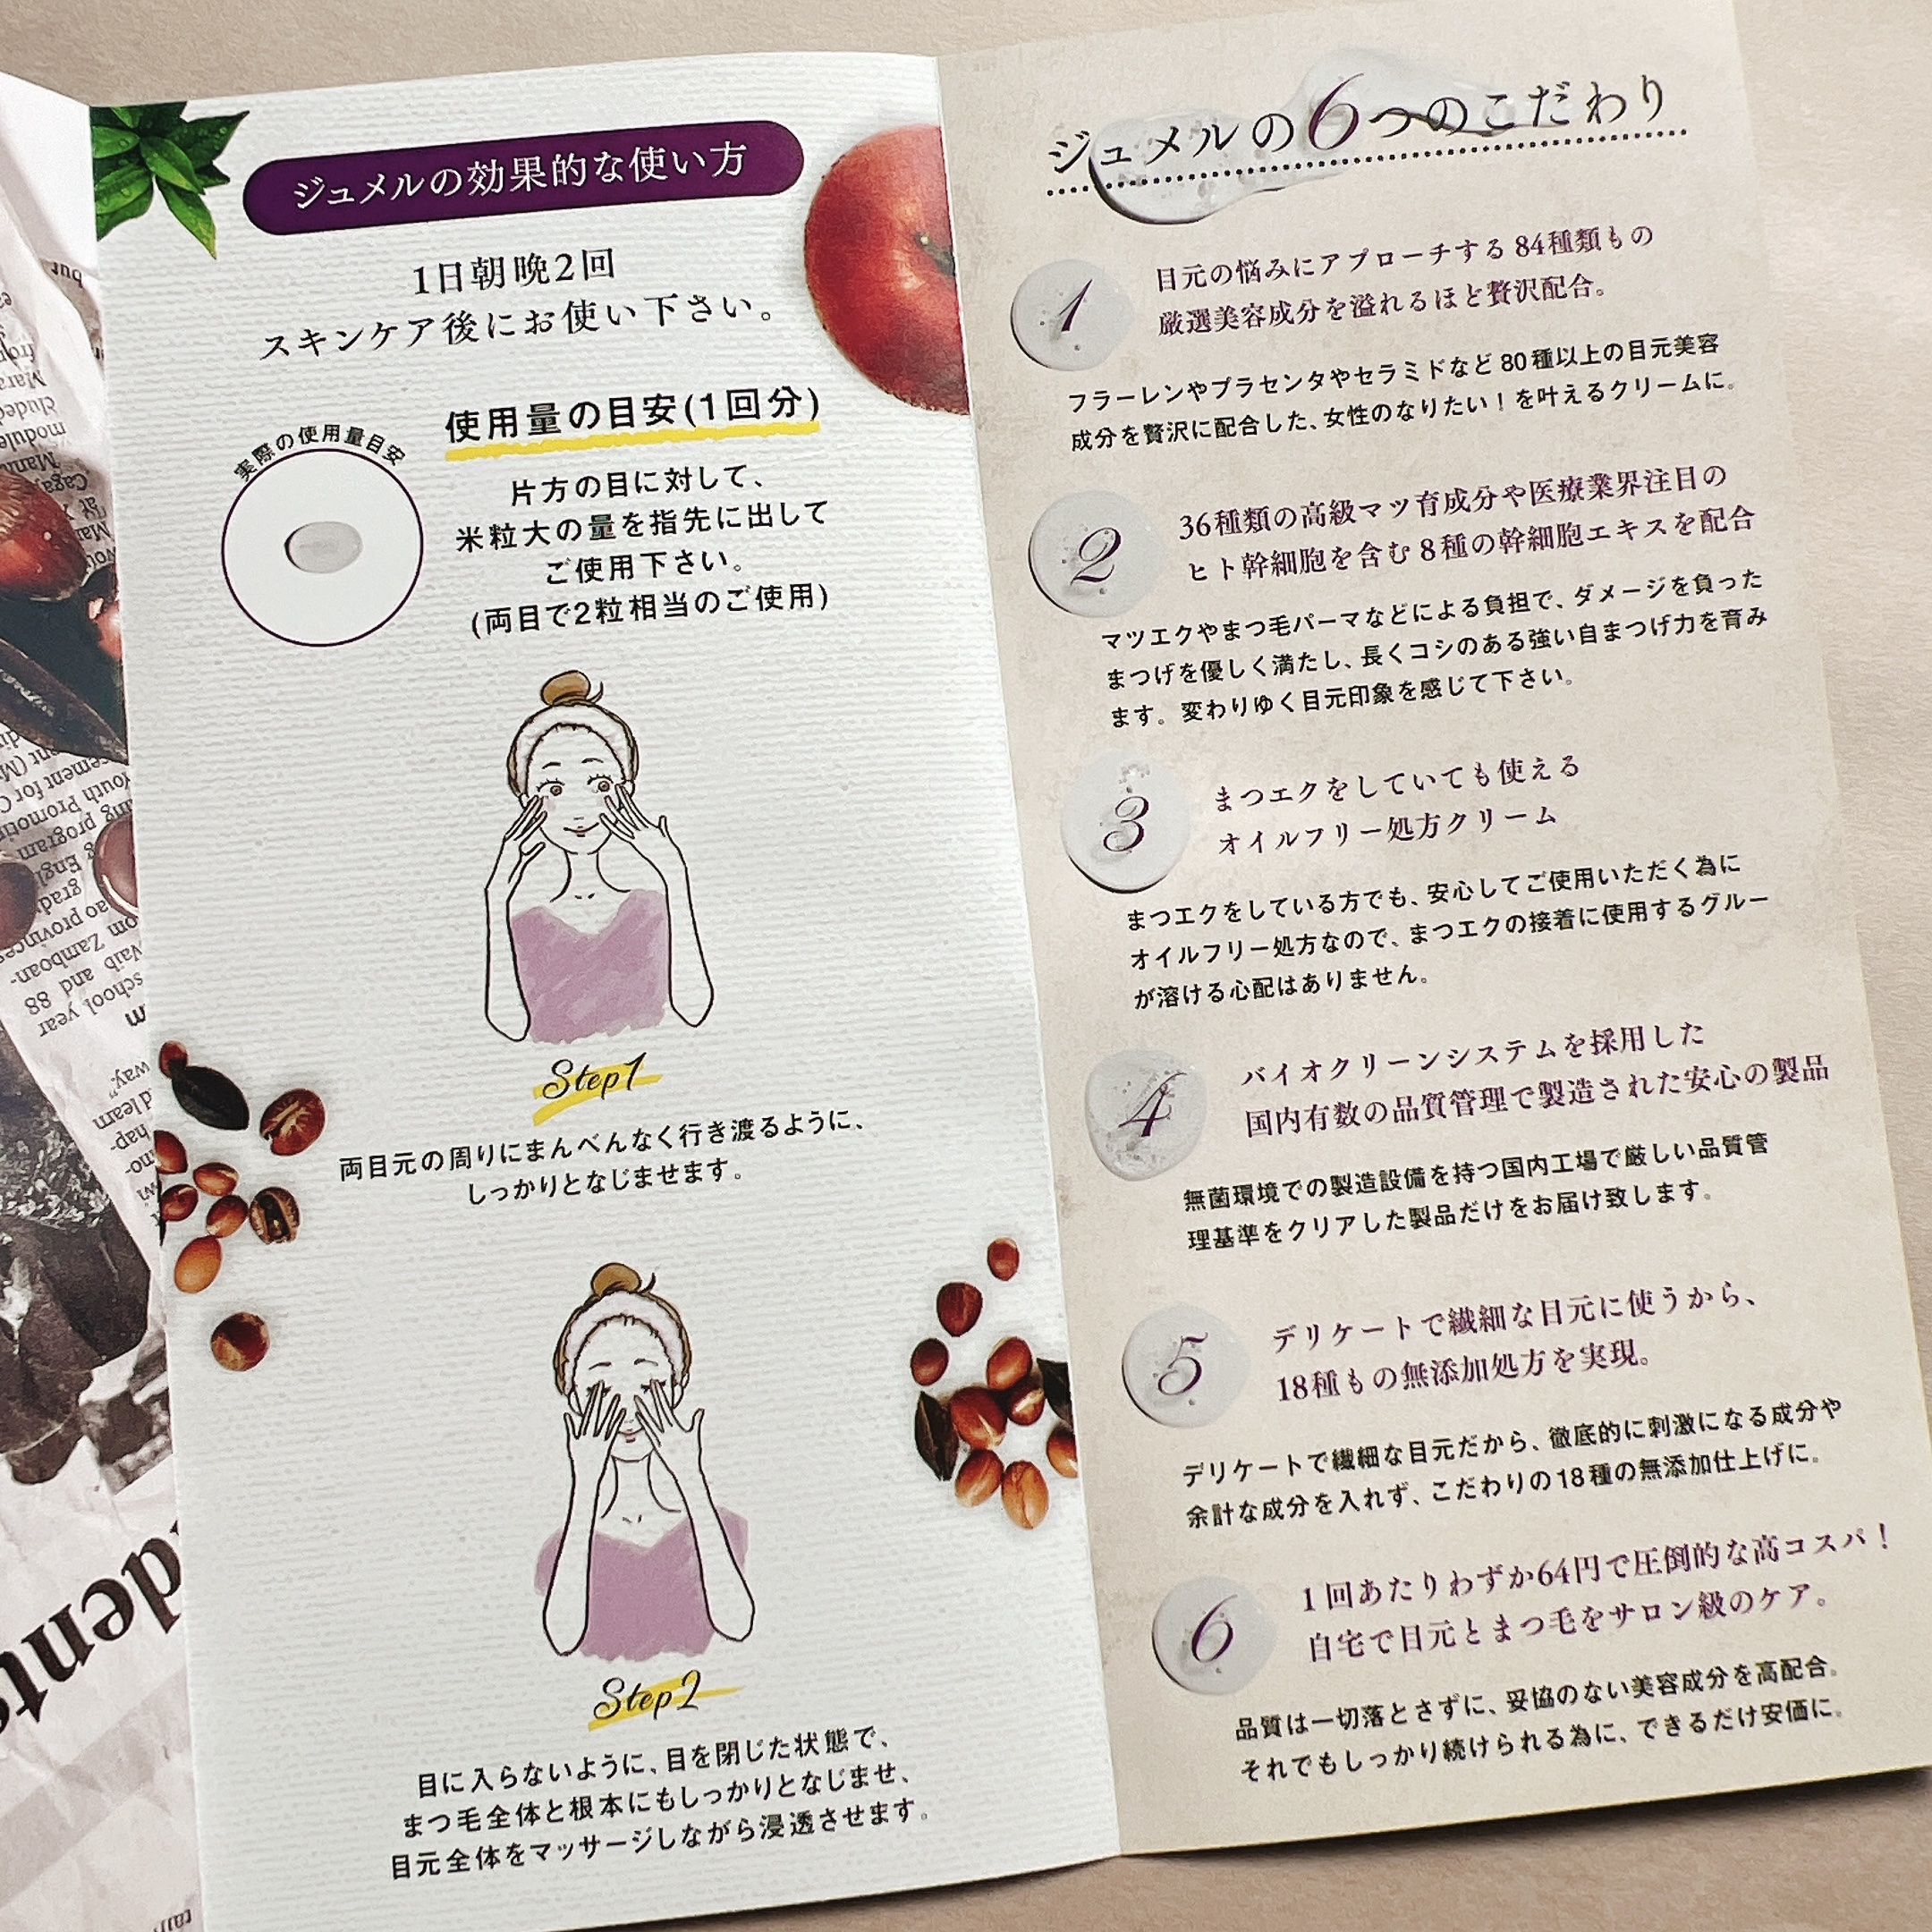 ジュメルの効果的な使い方
1日朝晩2回
スキンケア後にお使い下さい。
使用量の目安(1回分)
実際の使用量目安
片方の目に対して、
米粒大の量を指先に出して
ご使用下さい。
(両目で2粒相当のご使用)
Step1
両目元の周りにまんべんなく行き渡るように、
しっかりとなじませます。
Step2
目に入らないように、目を閉じた状態で、
まつ毛全体と根本にもしっかりとなじませ、
目元全体をマッサージしながら浸透させます。
ジュメルの6つのこだわり
1
目元の悩みにアプローチする84種類もの
厳選美容成分を溢れるほど贅沢配合。
フラーレンやプラセンタやセラミドなど80種以上の目元美容
成分を贅沢に配合した、女性のなりたい！を叶えるクリームに。
2
36種類の高級マツ育成分や医療業界注目の
ヒト幹細胞を含む8種の幹細胞エキスを配合
マツエクやまつ毛パーマなどによる負担で、ダメージを負った
まつげを優しく満たし、長くコシのある強い自まつげ力を育み
ます。変わりゆく目元印象を感じて下さい。
3
まつエクをしていても使える
オイルフリー処方クリーム
まつエクをしている方でも、安心してご使用いただく為に
オイルフリー処方なので、まつエクの接着に使用するグルー
が溶ける心配はありません。
4
バイオクリーンシステムを採用した
国内有数の品質管理で製造された安心の製品
無菌環境での製造設備を持つ国内工場で厳しい品質管
理基準をクリアした製品だけをお届け致します。
5
デリケートで繊細な目元に使うから、
18種もの無添加処方を実現。
デリケートで繊細な目元だから、徹底的に刺激になる成分や
余計な成分を入れず、こだわりの18種の無添加仕上げに。
6
1回あたりわずか64円で圧倒的な高コスパ！
自宅で目元とまつ毛をサロン級のケア。
品質は一切落とさずに、妥協のない美容成分を高配合。
それでもしっかり続けられる為に、できるだけ安価に。